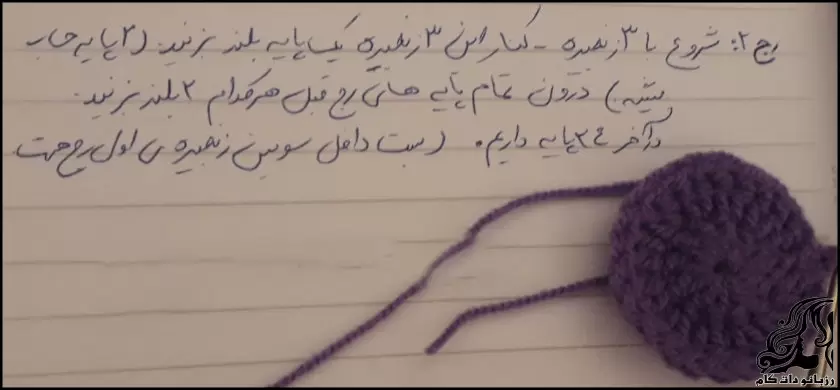 رج ۲: شروع با ۳ زنجیره - کنار این ۳ زنجیره یک پایه بلند بزنید. (۲ پایه حساب
میشه) درون تمام پایه های رج قبل هرکدام ۲ بلند بزنید.
در آخر ۲۴ پایه داریم. (بست داخل سومین زنجیره ی اول رج جهت
روزبانو دات کام